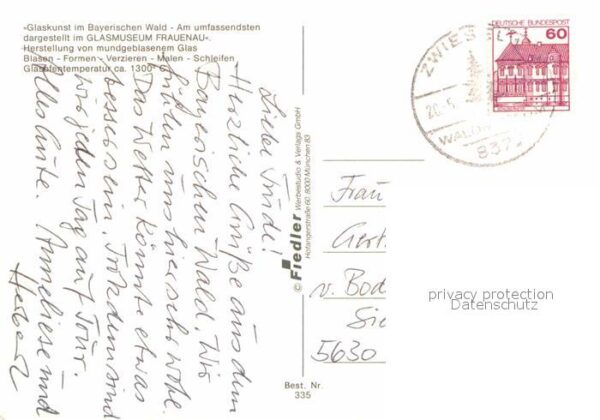 »Glaskunst im Bayerischen Wald - Am umfassendsten
dargestellt im GLASMUSEUM FRAUENAU«.
Herstellung von mundgeblasenem Glas
Blasen - Formen - Verzieren - Malen - Schleifen
Glasofentemperatur ca. 1300° C
Liebe Trude!
Herzliche Grüße aus dem
Bayerischen Wald. Wir
fühlen uns hier sehr wohl.
Das Wetter könnte etwas
besser sein. Trotzdem sind
wir jeden Tag auf Tour.
Alles Gute. Anneliese und
Herbert
© Fiedler Werbestudio & Verlags GmbH
Hofangerstraße 60, 8000 München 83
Best. Nr.
335
DEUTSCHE BUNDESPOST
60
ZWIESEL
20.5.
837
Frau
Gert
v. Bod
Sie
5630
privacy protection
Datenschutz